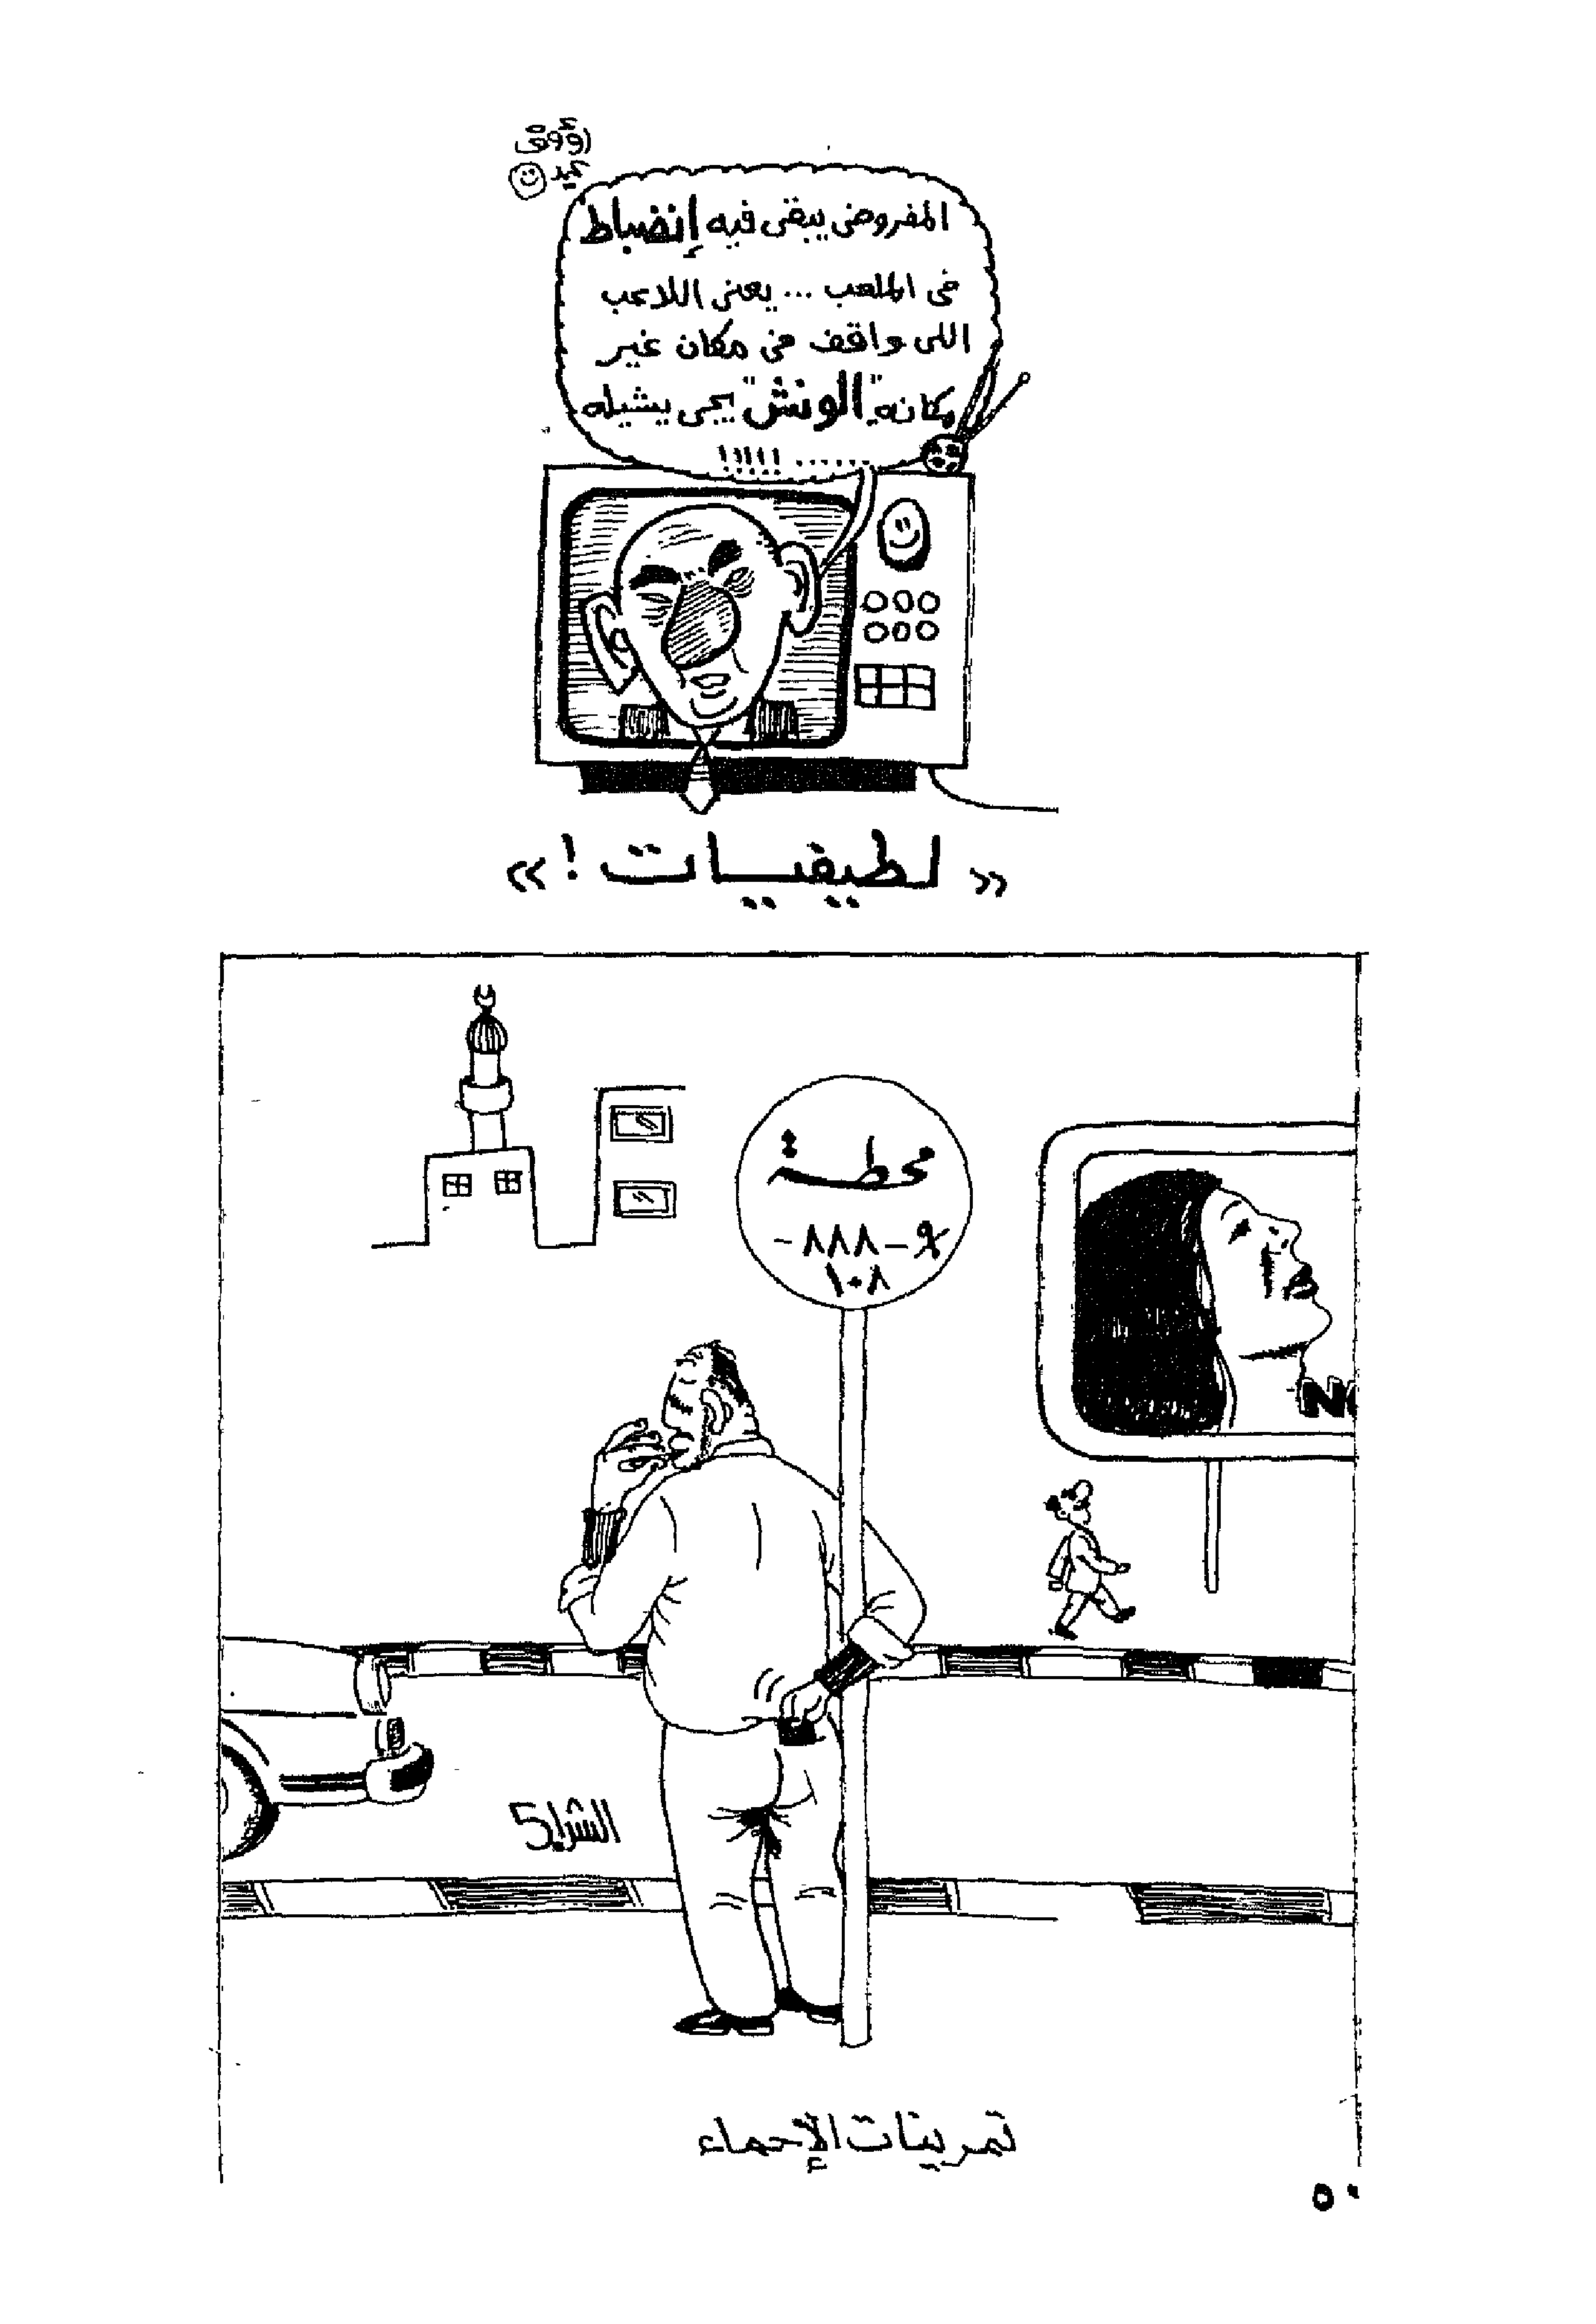 رؤوف
المفروض يبقى فيه إنضباط
فى الملعب ... يعنى اللاعب
اللى واقف فى مكان غير
مكانه "الونش" يجى يشيله
...... !!!!!
« لطيفيـــات ! »
محطـــة
- ٨٨٨ -
١٠٨
NO
تمرينات الإحماء
٥٠